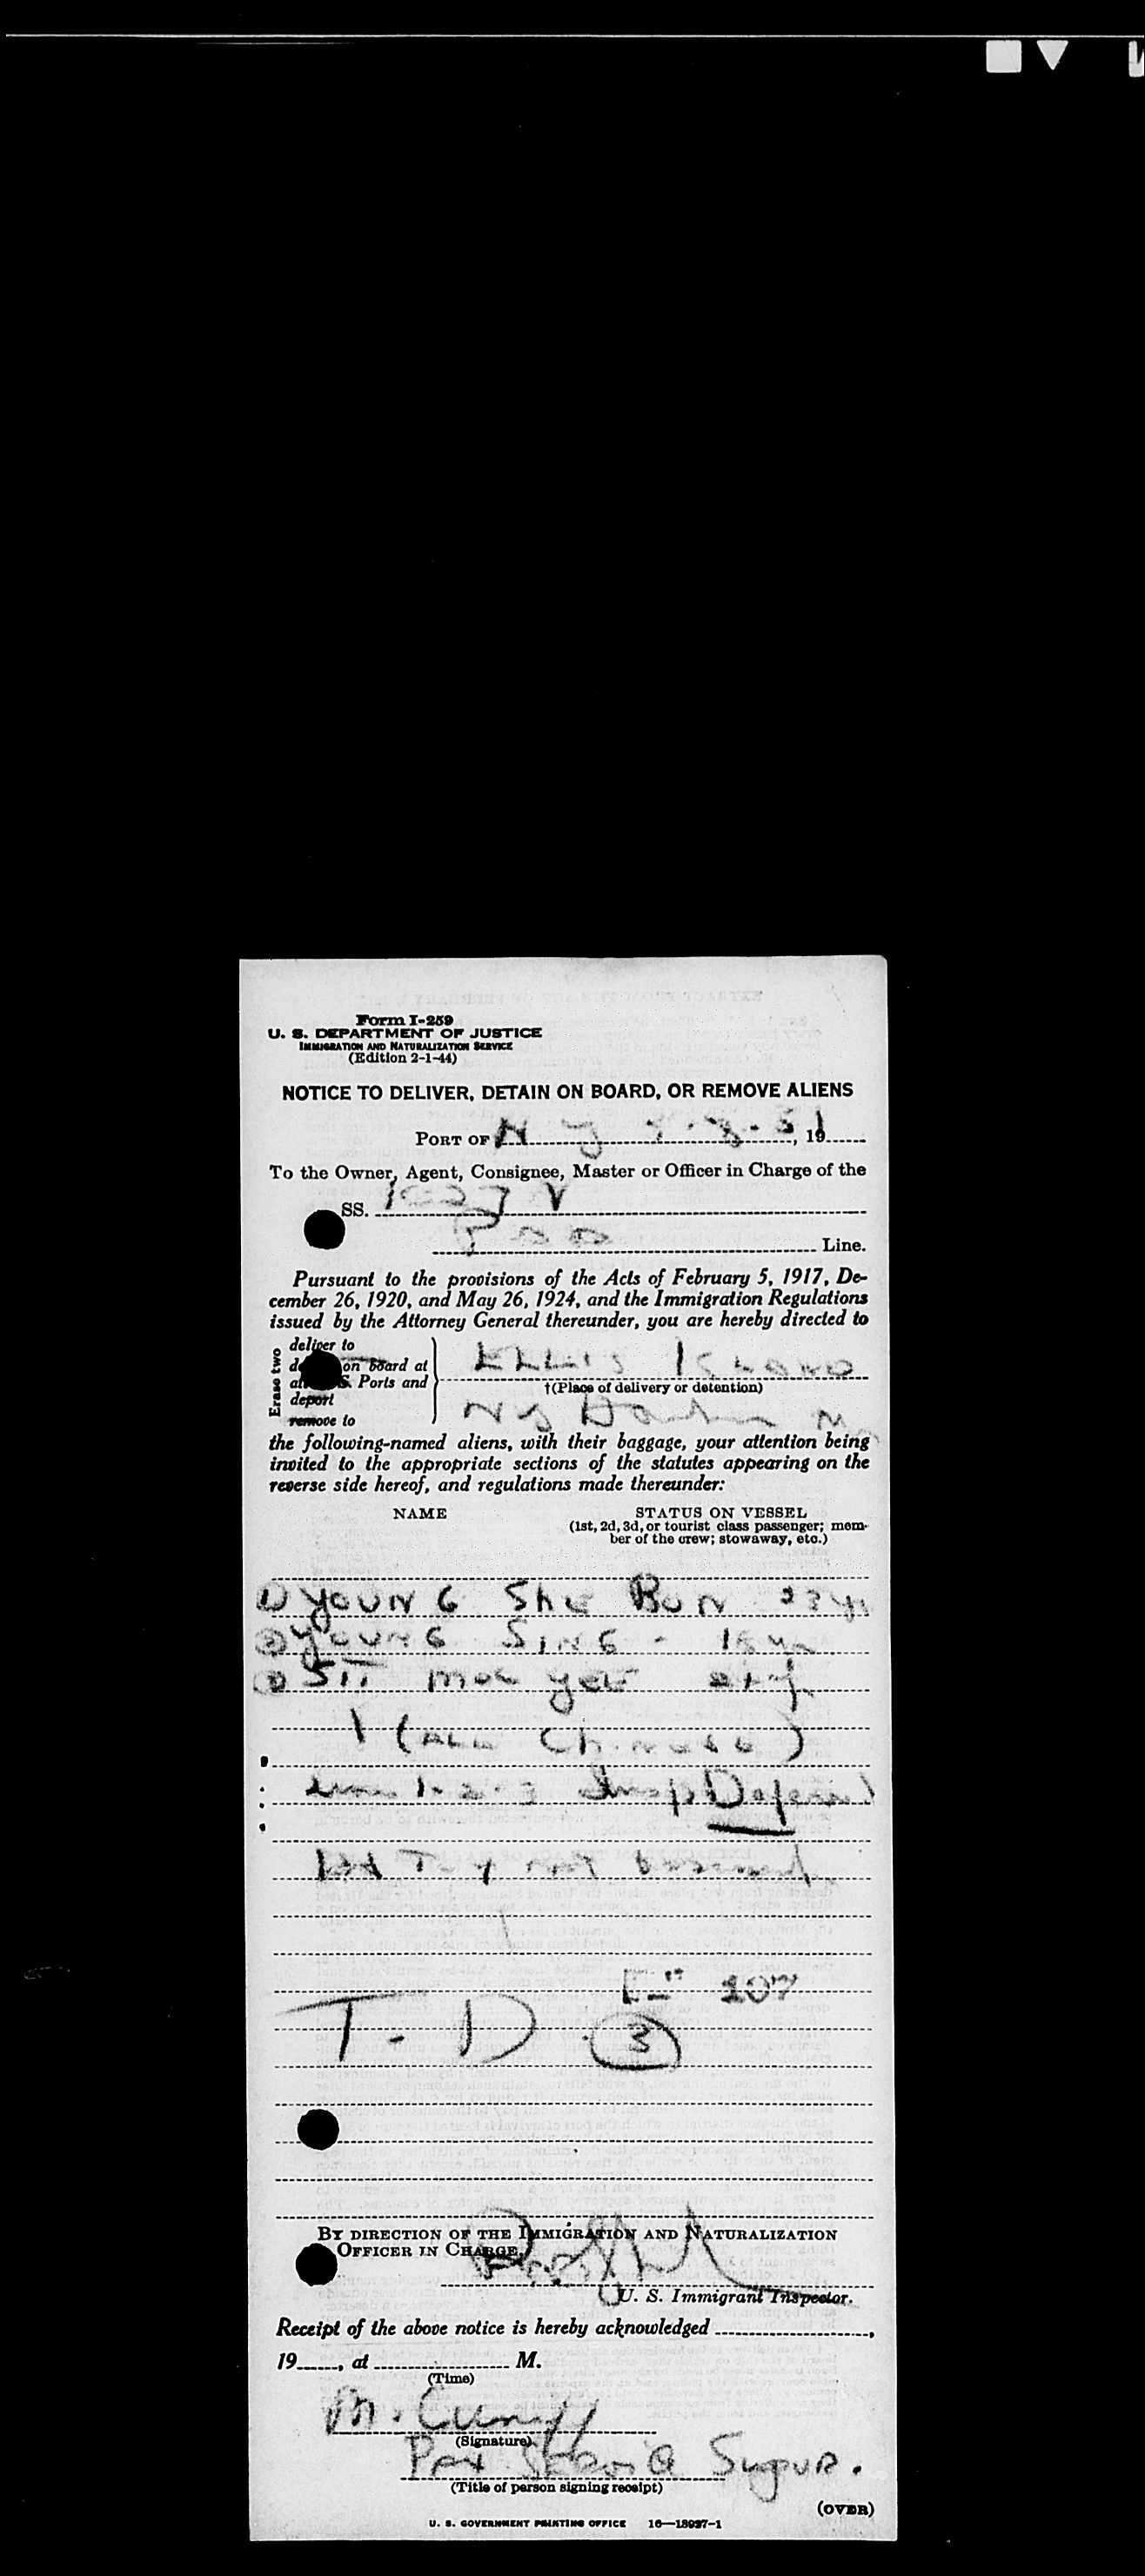 Form I-259
U. S. DEPARTMENT OF JUSTICE
IMMIGRATION AND NATURALIZATION SERVICE
(Edition 2-1-44)
NOTICE TO DELIVER, DETAIN ON BOARD, OR REMOVE ALIENS
PORT OF N Y 51, 19
To the Owner, Agent, Consignee, Master or Officer in Charge of the
SS. 1027 V
Line.
Pursuant to the provisions of the Acts of February 5, 1917, De-
cember 26, 1920, and May 26, 1924, and the Immigration Regulations
issued by the Attorney General thereunder, you are hereby directed to
Erase two
deliver to
on board at
S. Ports and
deport
remove to
ELLIS ISLAND
†(Place of delivery or detention)
NY
the following-named aliens, with their baggage, your attention being
invited to the appropriate sections of the statutes appearing on the
reverse side hereof, and regulations made thereunder:
NAME STATUS ON VESSEL
(1st, 2d, 3d, or tourist class passenger; mem-
ber of the crew; stowaway, etc.)
① YOUNG She BUN 23 yr
② YOUNG SING - 18 yr
③ SIT MOK yet
(ALL Chinese)
1-2-3
not
E 107
T. D. ③
BY DIRECTION OF THE IMMIGRATION AND NATURALIZATION
OFFICER IN CHARGE,
U. S. Immigrant Inspector.
Receipt of the above notice is hereby acknowledged ,
19 , at M.
(Time)
M. Cuniff
(Signature)
Pax Service Supvr.
(Title of person signing receipt)
(OVER)
U. S. GOVERNMENT PRINTING OFFICE 16—13937-1